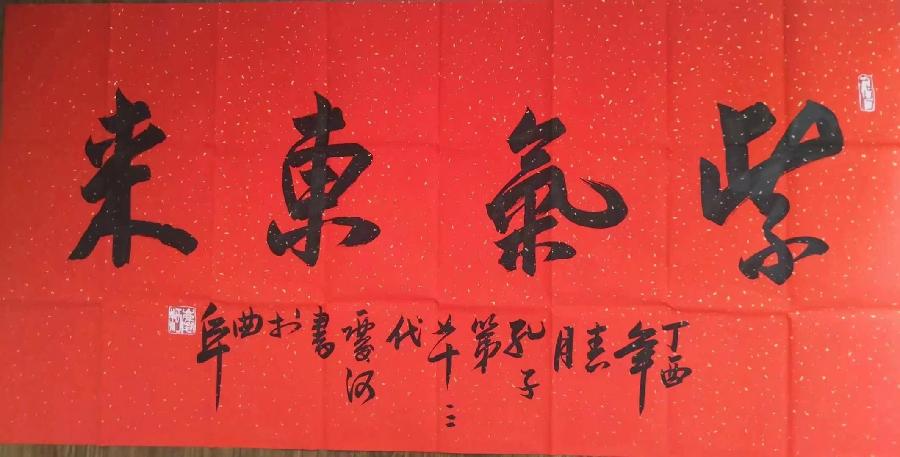 紫氣東来
丁酉年春月孔子第七十三代慶河書於曲阜